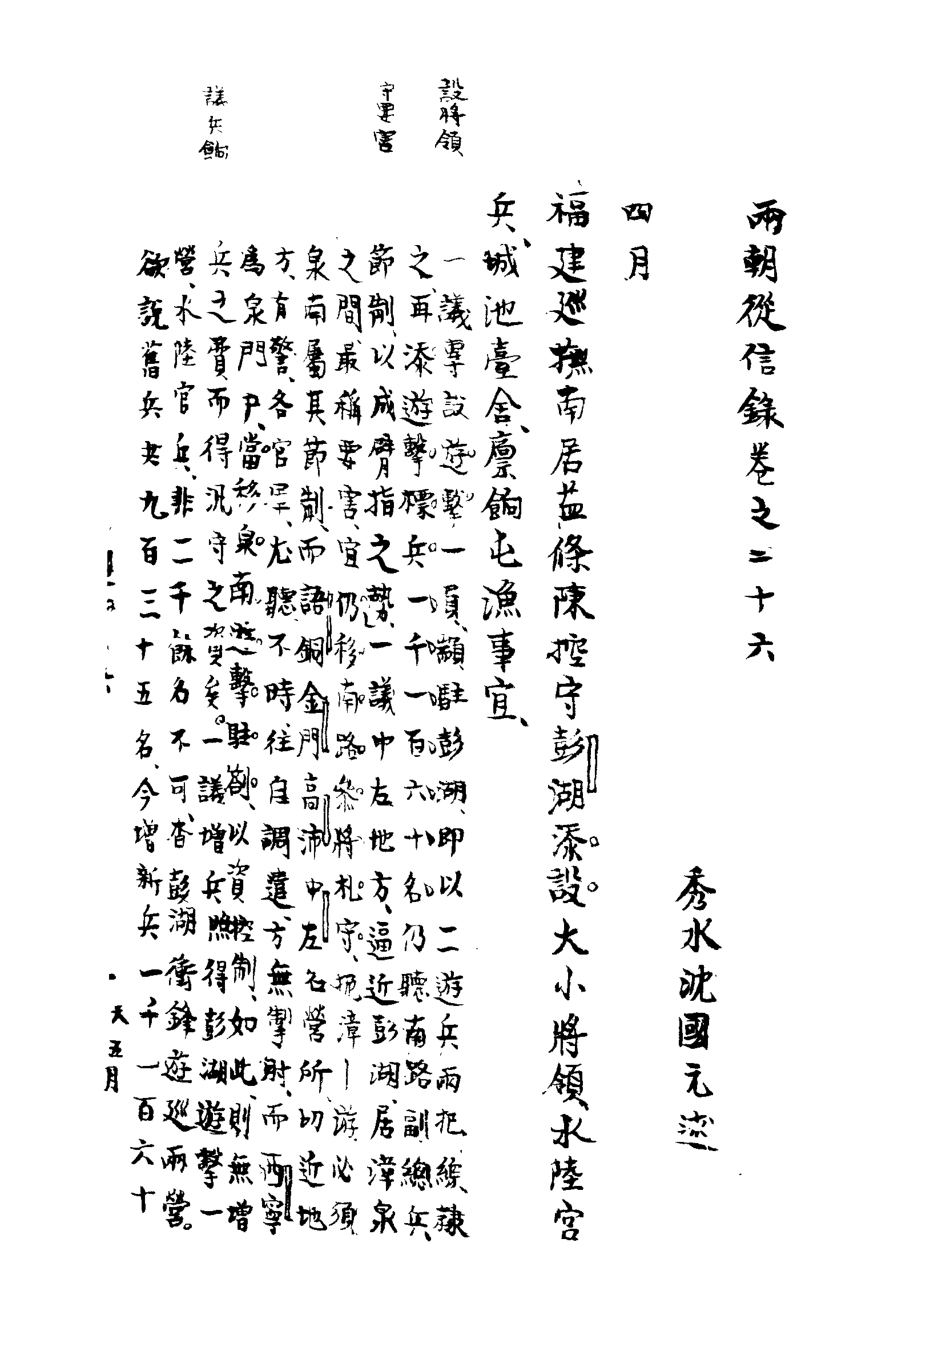 兩朝從信錄卷之二十六
秀水沈國元述
四月
福建巡撫南居益條陳控守彭湖添設大小將領水陸官
兵、城池臺舍、廪餉屯漁事宜、
設將領
一議專設遊擊一員、顓駐彭湖、即以二遊兵兩把總隸
之、再添遊擊標兵一千一百六十名、仍聽南路副總兵、
節制、以成臂指之勢、一議中左地方、逼近彭湖、居漳泉
守要害
之間、最稱要害、宜仍移南路參將札守、扼漳 游必須
泉南屬其節制、而語銅金門高沛中左名營所切近地
方、有警、各官 尤聽不時往自調遣、方無掣肘、而西寧
為泉門戶、當移泉南遊擊駐劄、以資控制、如此、則無增
兵之費而得汛守之 矣。一議增兵照得彭湖遊擊一
議兵餉
營、水陸官兵、非二千餘名不可、查彭湖衝鋒遊巡兩營。
欲說舊兵共九百三十五名、今增新兵一千一百六十
天五月